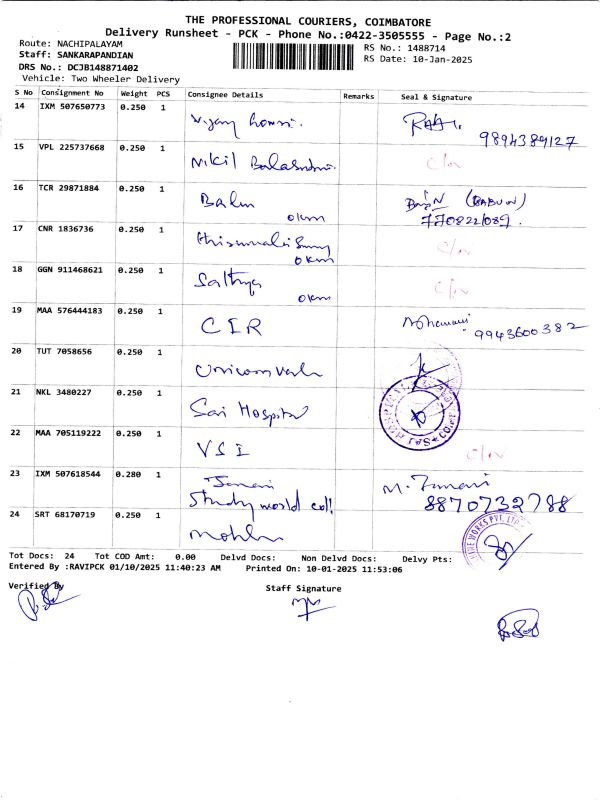 THE PROFESSIONAL COURIERS, COIMBATORE
Delivery Runsheet - PCK - Phone No.:0422-3505555 - Page No.:2
Route: NACHIPALAYAM RS No.: 1488714
Staff: SANKARAPANDIAN RS Date: 10-Jan-2025
DRS No.: DCJB148871402
Vehicle: Two Wheeler Delivery
S No Consignment No Weight PCS Consignee Details Remarks Seal & Signature
14 IXM 507650773 0.250 1 Vijay
9894389127
15 VPL 225737668 0.250 1 Nikil C/n
16 TCR 29871884 0.250 1 Balu (BABU N)
0km 770822/089.
17 CNR 1836736 0.250 1 C/n
0km
18 GGN 911468621 0.250 1 Sathya C/n
0km
19 MAA 576444183 0.250 1 CIR 9943600382
20 TUT 7058656 0.250 1
21 NKL 3480227 0.250 1 Sai Hospital
22 MAA 705119222 0.250 1 VSI C/n
23 IXM 507618544 0.280 1 Janani M. Janani
Study world coll. 8870732788
24 SRT 68170719 0.250 1
Tot Docs: 24 Tot COD Amt: 0.00 Delvd Docs: Non Delvd Docs: Delvy Pts:
Entered By :RAVIPCK 01/10/2025 11:40:23 AM Printed On: 10-01-2025 11:53:06
Verified By Staff Signature